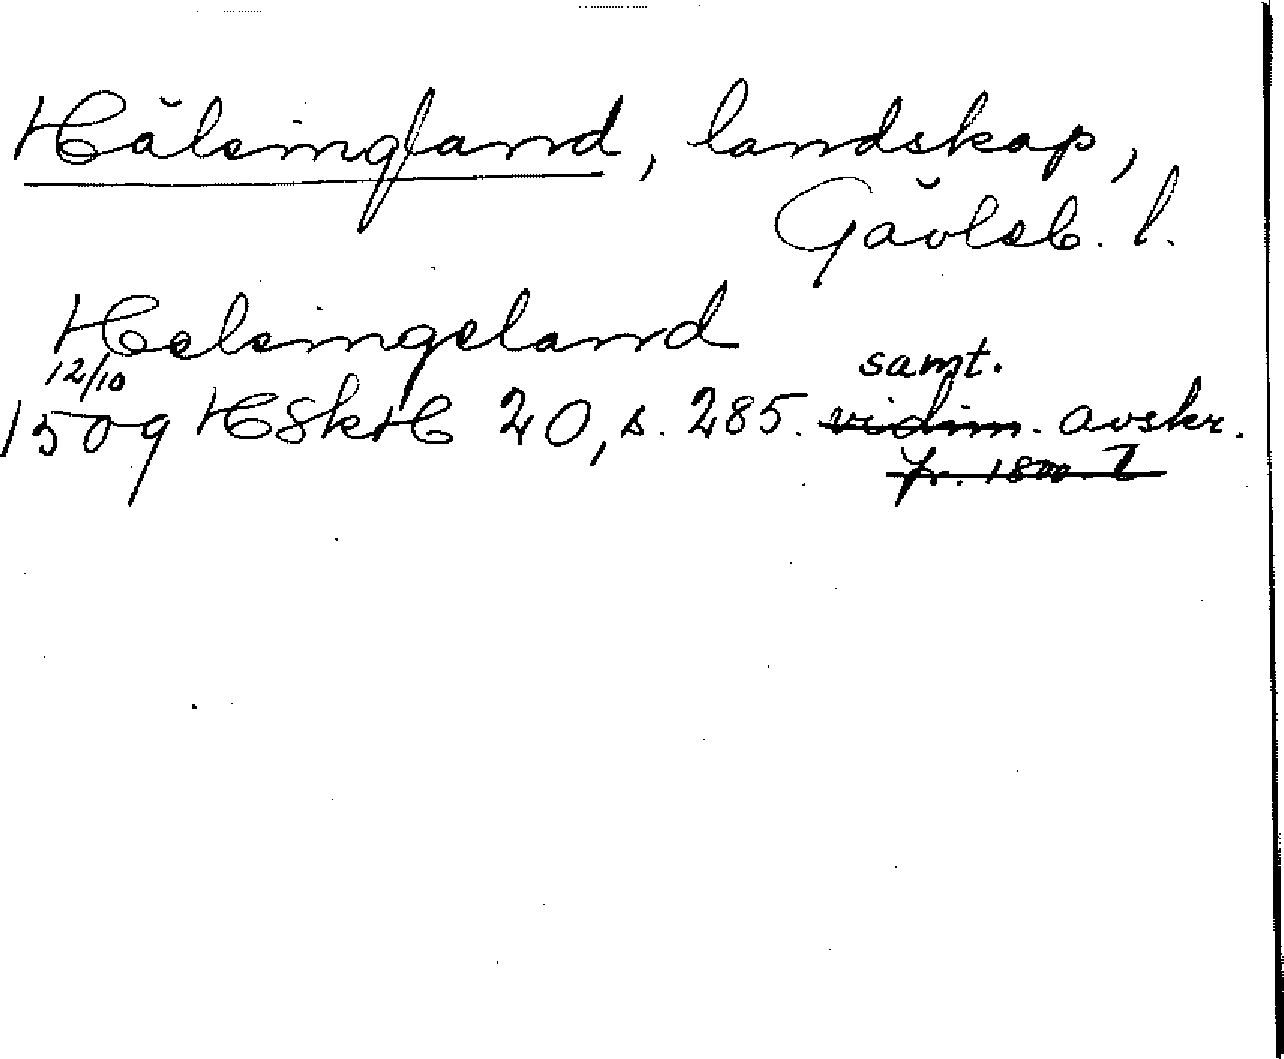 Hälsingland, landskap,
Gävleb. l.
Helsingeland
12/10 samt.
1509 HSkH 20, s. 285. vidim. avskr.
fr. 1800-t